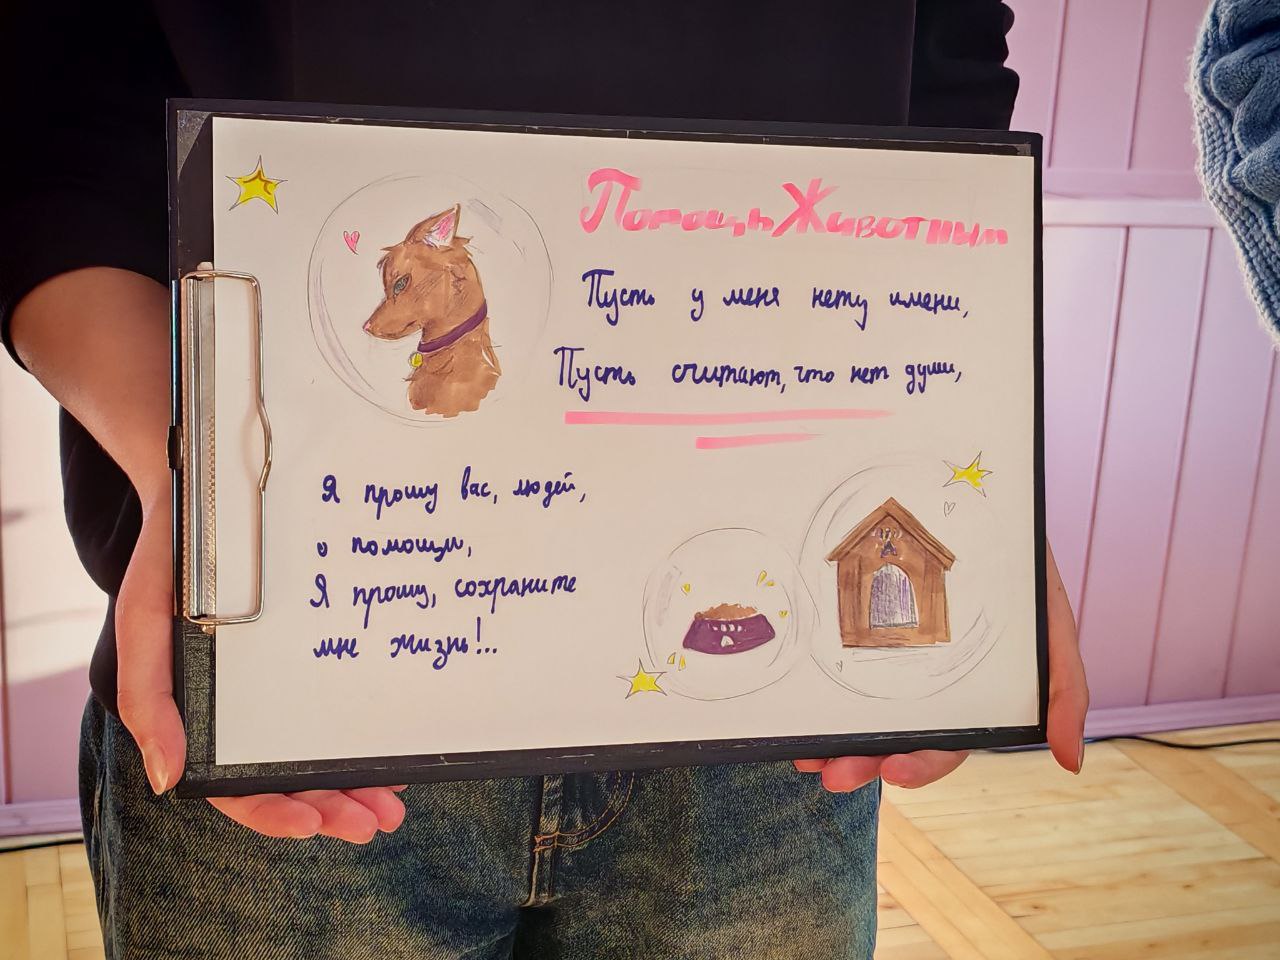 Помощь Животным
Пусть у меня нету имени,
Пусть считают, что нет души,
Я прошу вас, людей,
о помощи,
Я прошу, сохраните
мне жизнь!..